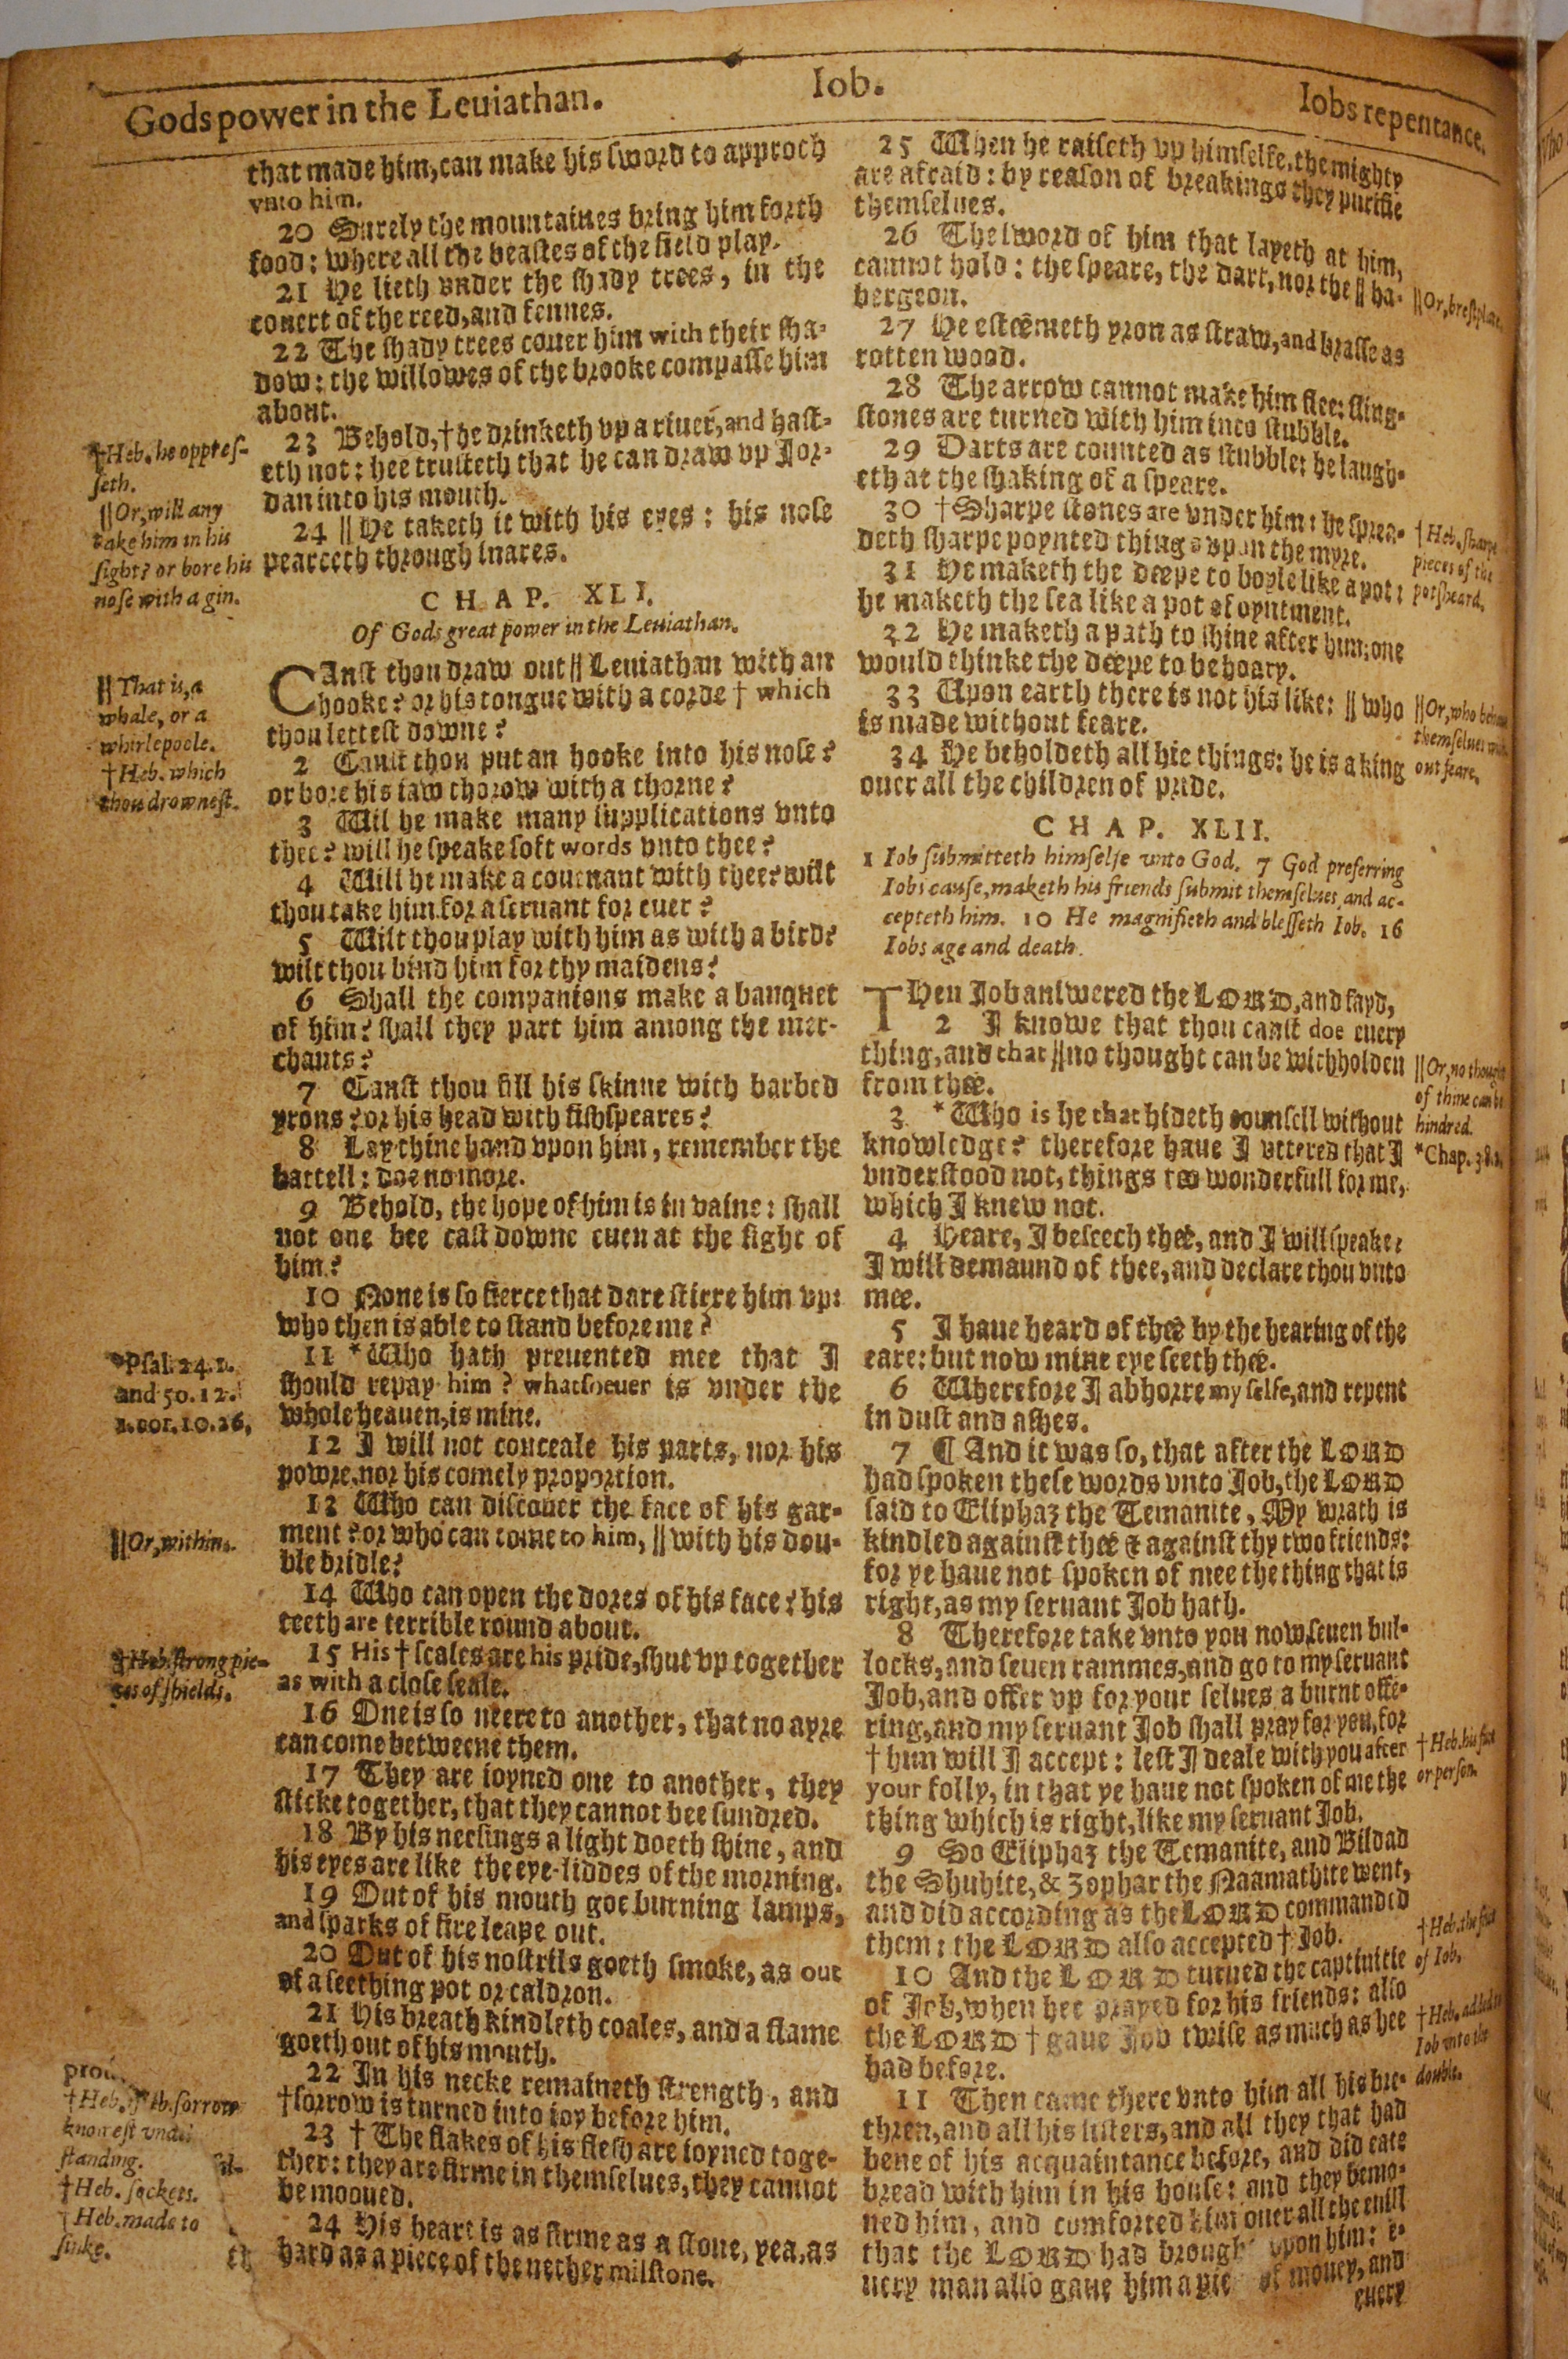 Gods power in the Leuiathan.
Iob.
Iobs repentance.
that made him, can make his sword to approch
vnto him.
20 Surely the mountaines bring him forth
food: where all the beastes of the field play.
21 He lieth vnder the shady trees, in the
couert of the reed, and fennes.
22 The shady trees couer him with their sha-
dow: the willowes of the brooke compasse him
about.
23 Behold, † he drinketh vp a riuer, and hast-
eth not: hee trusteth that he can draw vp Jor-
dan into his mouth.
24 || He taketh it with his eyes: his nose
pearceth through snares.
CHAP. XLI.
Of Gods great power in the Leuiathan.
CAnst thou draw out || Leuiathan with an
hooke? or his tongue with a corde † which
thou lettest downe?
2 Canst thou put an hooke into his nose?
or bore his iaw thorow with a thorne?
3 Wil he make many supplications vnto
thee? will he speake soft words vnto thee?
4 Will he make a couenant with thee? wilt
thou take him for a seruant for euer?
5 Wilt thou play with him as with a bird?
wilt thou bind him for thy maidens?
6 Shall the companions make a banquet
of him? shall they part him among the mer-
chants?
7 Canst thou fill his skinne with barbed
yrons? or his head with fishspeares?
8 Lay thine hand vpon him, remember the
battell: doe no more.
9 Behold, the hope of him is in vaine: shall
not one bee cast downe euen at the sight of
him?
10 None is so fierce that dare stirre him vp:
who then is able to stand before me?
11 * Who hath preuented mee that I
should repay him? whatsoeuer is vnder the
whole heauen, is mine.
12 I will not conceale his parts, nor his
powre, nor his comely proportion.
13 Who can discouer the face of his gar-
ment? or who can come to him, || with his dou-
ble bridle?
14 Who can open the dores of his face? his
teeth are terrible round about.
15 His † scales are his pride, shut vp together
as with a close seale.
16 One is so neere to another, that no ayre
can come betweene them.
17 They are ioyned one to another, they
sticke together, that they cannot bee sundred.
18 By his neesings a light doeth shine, and
his eyes are like the eye-liddes of the morning.
19 Out of his mouth goe burning lamps,
and sparks of fire leape out.
20 Out of his nostrils goeth smoke, as out
of a seething pot or caldron.
21 His breath kindleth coales, and a flame
goeth out of his mouth.
22 In his necke remaineth strength, and
† sorrow is turned into ioy before him.
23 † The flakes of his flesh are ioyned toge-
ther: they are firme in themselues, they cannot
be mooued.
24 His heart is as firme as a stone, yea, as
hard as a piece of the nether milstone.
† Heb. he oppres-
seth.
|| Or, will any
take him in his
sight? or bore his
nose with a gin.
|| That is, a
whale, or a
whirlepoole.
† Heb. which
thou drownest.
* Psal. 24. 1.
and 50. 12.
1. cor. 10. 26,
|| Or, within.
† Heb. strong pie-
ces of shields.
† Heb. sorrow
knowest
standing.
† Heb. sockets.
† Heb. made to
sinke.
25 When he raiseth vp himselfe, the mighty
are afraid: by reason of breakings they purifie
themselues.
26 The sword of him that layeth at him,
cannot hold: the speare, the dart, nor the || ha-
bergeon.
27 He esteemeth yron as straw, and brasse as
rotten wood.
28 The arrow cannot make him flee: sling-
stones are turned with him into stubble.
29 Darts are counted as stubble: he laugh-
eth at the shaking of a speare.
30 † Sharpe stones are vnder him: he sprea-
deth sharpe poynted things vpon the myre.
31 He maketh the deepe to boyle like a pot:
he maketh the sea like a pot of oyntment.
32 He maketh a path to shine after him; one
would thinke the deepe to be hoary.
33 Upon earth there is not his like: || who
is made without feare.
34 He beholdeth all hie things: he is a king
ouer all the children of pride.
CHAP. XLII.
1 Iob submitteth himselfe vnto God. 7 God preferring
Iobs cause, maketh his friends submit themselues, and ac-
cepteth him. 10 He magnifieth and blesseth Iob. 16
Iobs age and death.
THen Job answered the LORD, and sayd,
2 I knowe that thou canst doe euery
thing, and that || no thought can be withholden
from thee.
3 * Who is he that hideth counsell without
knowledge? therefore haue I vttered that I
vnderstood not, things too wonderfull for me,
which I knew not.
4 Heare, I beseech thee, and I will speake:
I will demaund of thee, and declare thou vnto
mee.
5 I haue heard of thee by the hearing of the
eare: but now mine eye seeth thee.
6 Wherefore I abhorre my selfe, and repent
in dust and ashes.
7 ¶ And it was so, that after the LORD
had spoken these words vnto Job, the LORD
said to Eliphaz the Temanite, My wrath is
kindled against thee & against thy two friends:
for ye haue not spoken of mee the thing that is
right, as my seruant Job hath.
8 Therefore take vnto you now, seuen bul-
locks, and seuen rammes, and go to my seruant
Job, and offer vp for your selues a burnt offe-
ring, and my seruant Job shall pray for you, for
† him will I accept: lest I deale with you after
your folly, in that ye haue not spoken of me the
thing which is right, like my seruant Job.
9 So Eliphaz the Temanite, and Bildad
the Shuhite, & Zophar the Naamathite went,
and did according as the LORD commanded
them: the LORD also accepted † Job.
10 And the LORD turned the captiuitie
of Job, when hee prayed for his friends: also
the LORD † gaue Job twise as much as hee
had before.
11 Then came there vnto him all his bre-
thren, and all his sisters, and all they that had
bene of his acquaintance before, and did eate
bread with him in his house: and they bemo-
ned him, and comforted him ouer all the euill
that the LORD had brought vpon him: e-
uery man also gaue him a piece of money, and
euery
|| Or, brestplate.
† Heb. sharpe
pieces of the
potsheard.
|| Or, who behaue
themselues with-
out feare.
|| Or, no thought
of thine can be
hindred.
* Chap. 38.2.
† Heb. his face
or person.
† Heb. the face
of Iob.
† Heb. added
Iob vnto the
double.